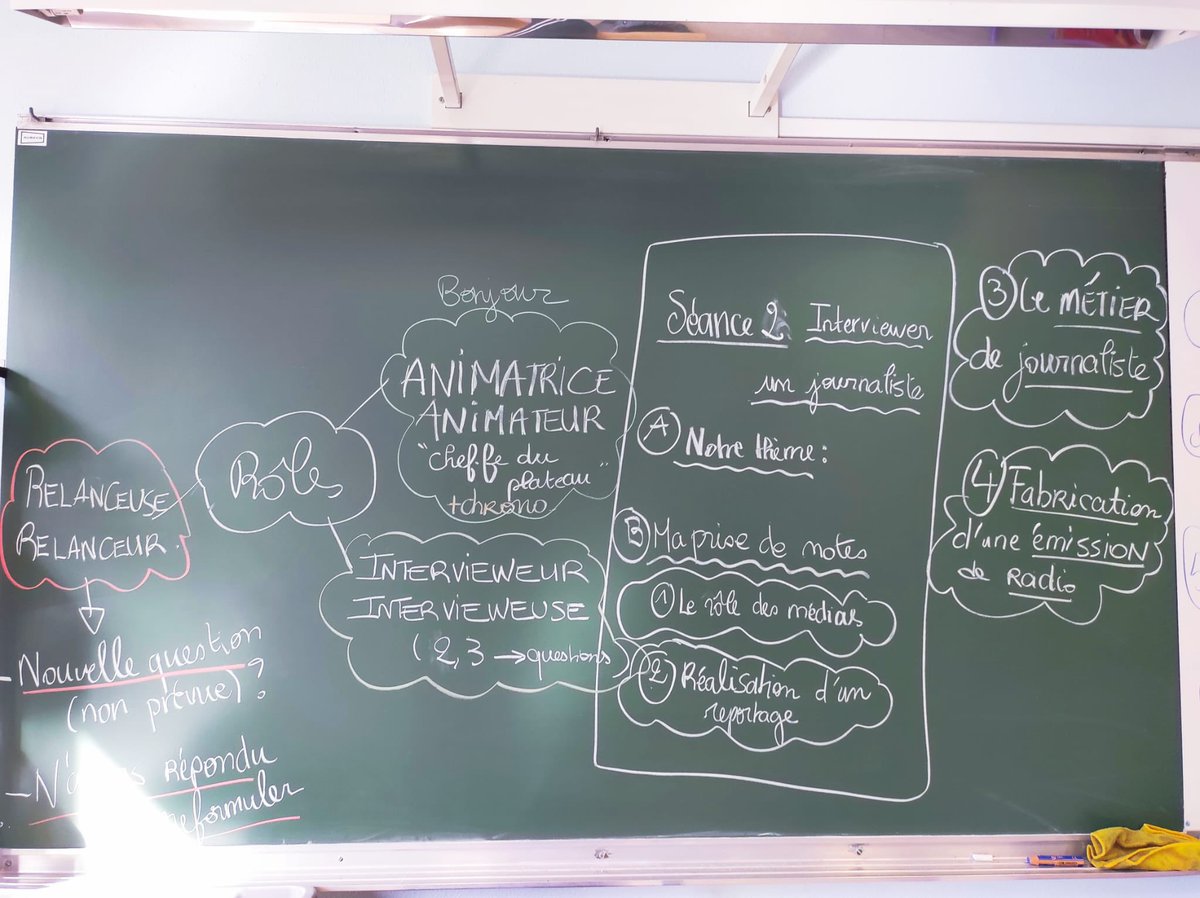 Bonjour
ANIMATRICE
ANIMATEUR
"cheffe du
plateau"
+chrono
Rôles
RELANCEUSE
RELANCEUR.
- Nouvelle question
(non prévue)?
- répondu
reformuler
INTERVIEWEUR
INTERVIEWEUSE
(2,3 → questions)
Séance 2: Interviewer
un journaliste
A Notre thème:
B Ma prise de notes
1 Le rôle des médias
2 Réalisation d'un
reportage
3 Le MÉTIER
de journaliste
4 Fabrication
d'une émission
de RADIO